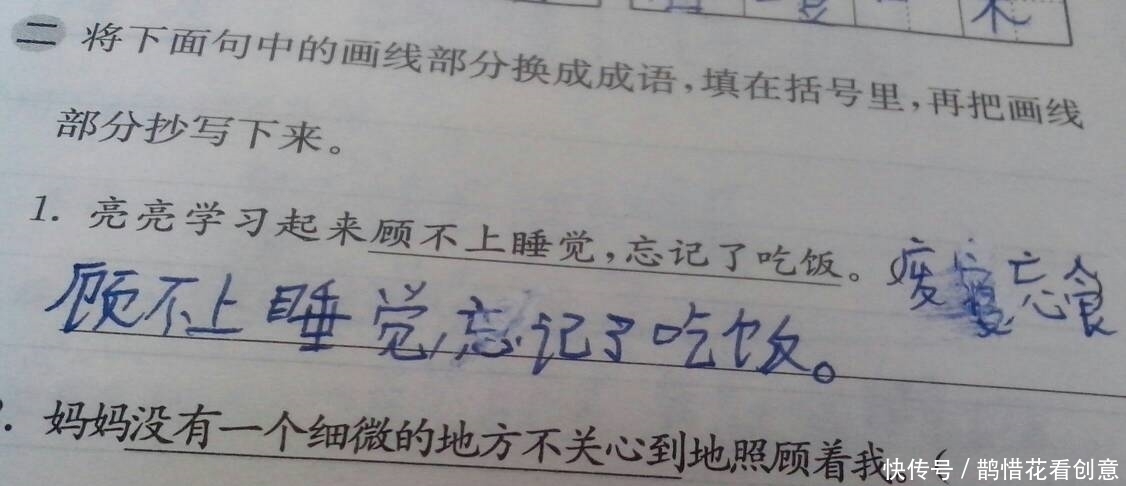 二 将下面句中的画线部分换成成语，填在括号里，再把画线
部分抄写下来。
1. 亮亮学习起来顾不上睡觉，忘记了吃饭。忘食
顾不上睡觉，忘记了吃饭。
. 妈妈没有一个细微的地方不关心到地照顾着我。(
快传号 / 鹊惜花看创意